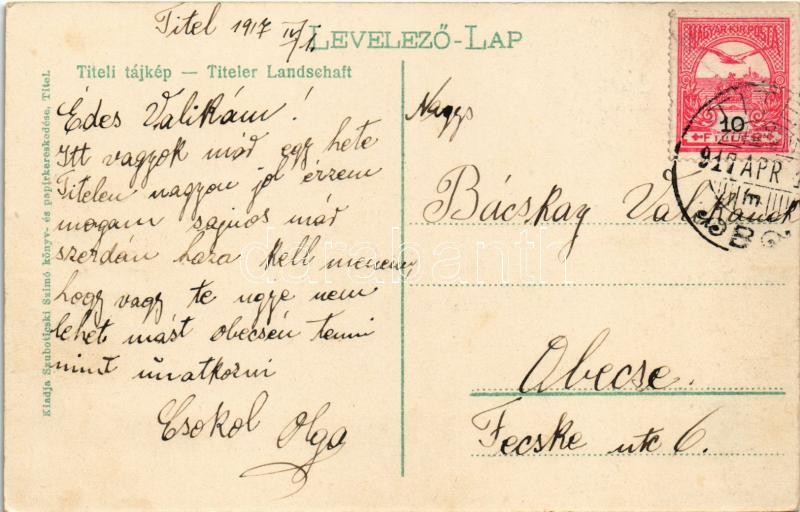 Titel 1917 IV/1.
LEVELEZŐ-LAP
Titeli tájkép — Titeler Landschaft
Édes Valikám!
Itt vagyok mád egy hete
Titelen nagyon jól érzem
mogam sajnos mád
szerdán haza kell mennem
hogy vagy te ugye nem
lehet mást obecsén tenni
mint únatkozni
Csokol Olga
Kiadja Szuboticski Szimó könyv- és papirkereskedése, Titel.
MAGYAR KIR. POSTA
10
FILLÉR
917 APR
Nagys
Bácskay Valikának
Obecse.
Fecske utc 6.
darabanth